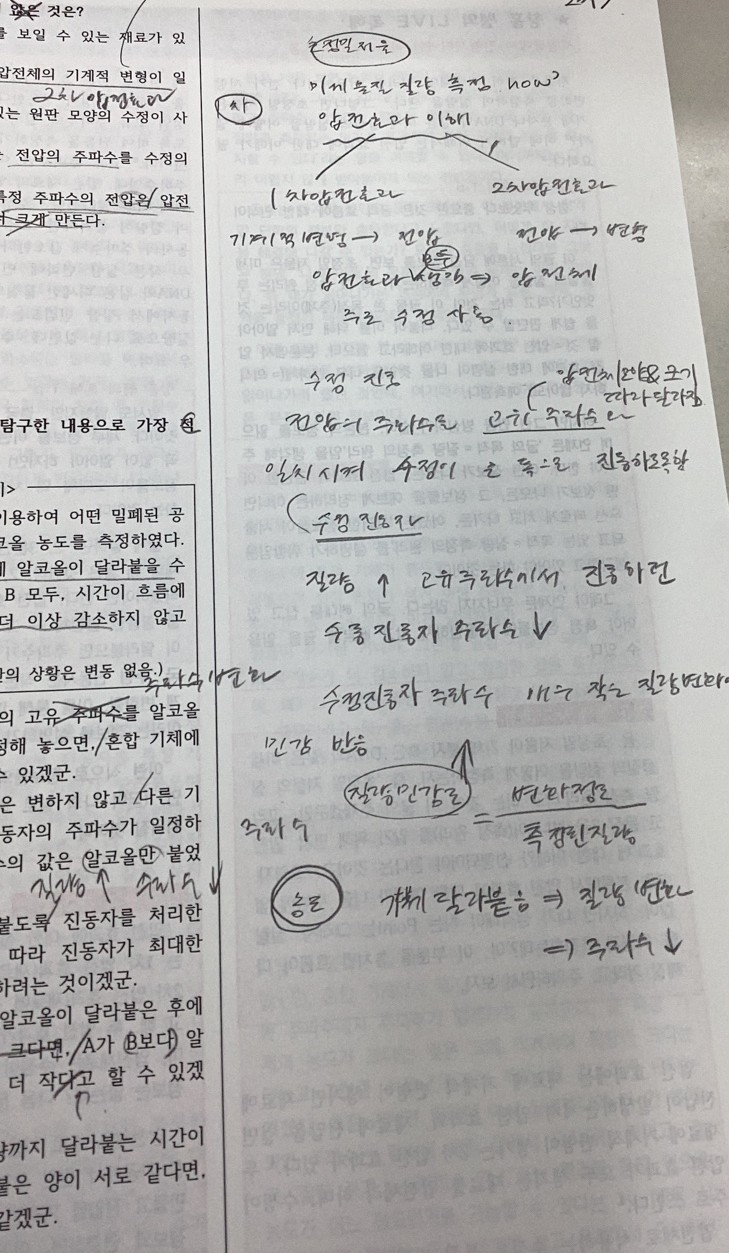 않은 것은?
를 보일 수 있는 재료가 있
압전체의 기계적 변형이 일
2차 압전효과
있는 원판 모양의 수정이 사
전압의 주파수를 수정의
특정 주파수의 전압을 압전
더 크게 만든다.
탐구한 내용으로 가장 적
기>
이용하여 어떤 밀폐된 공
코올 농도를 측정하였다.
에 알코올이 달라붙을 수
B 모두, 시간이 흐름에
더 이상 감소하지 않고
의 상황은 변동 없음.)
주파수 변화
의 고유 주파수를 알코올
정해 놓으면, 혼합 기체에
수 있겠군.
은 변하지 않고 다른 기
동자의 주파수가 일정하
수의 값은 알코올만 붙었
질량 ↑ 주파수 ↓
붙도록 진동자를 처리한
따라 진동자가 최대한
하려는 것이겠군.
알코올이 달라붙은 후에
크다면, A가 B보다 알
더 작다고 할 수 있겠
량까지 달라붙는 시간이
붙은 양이 서로 같다면,
같겠군.
초정밀저울
미세 물질 질량 측정 how?
압전효과 이해
1차압전효과
2차압전효과
기계적변형 → 전압
전압 → 변형
모두
압전효과 생김 ⇒ 압전체
주로 수정 사용.
수정 진동
압전체 모양 & 크기
따라 달라짐.
전압의 주파수를 고유 주파수와
일치시켜 수정이 큰 폭으로 진동하도록함
수정 진동자
질량 ↑ 고유주파수에서 진동하던
수정진동자 주파수 ↓
수정진동자 주파수 매우 작은 질량변화에
민감 반응
질량민감도 = 변화정도
측정된질량
주파수
농도
기체 달라붙음 ⇒ 질량 변화
⇒ 주파수 ↓